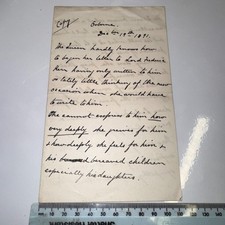 Copy
Osborne
Dec 19th 1891.
The Queen hardly knows how
to begin her letter to Lord
her having only written to him
so lately little thinking of the sad
occasion when she would have
to write to him
She cannot express to him how
very deeply she grieves for him
& how deeply she feels for him &
his bereaved children
especially his daughters.
0 10 20 30 40 50 60 70 80 90 100 110 120 130 140